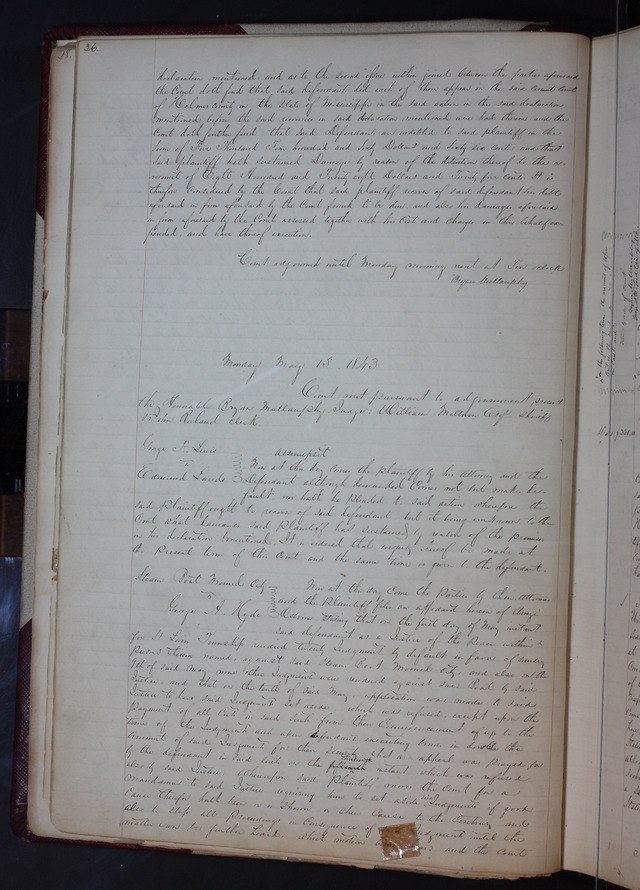 26.
declaration mentioned and as to the second issue within joined between the parties aforesaid
the Court doth find that said defendants did each of them appear in the said Circuit Court
of Holmes County in the State of Mississippi in the said action in the said declaration
mentioned before the said in said declaration mentioned was had thereon and the
Court doth further find that said Defendants are indebted to said plaintiff in the
Sum of Thousand hundred and Sixty Dollars and Sixty six cents and that
Said plaintiff hath sustained Damage by reason of the detention thereof to the a-
mount of Eight Hundred and Twenty eight Dollars and Twenty five Cents It is
therefore Considered by the Court that said plaintiff recover of said defendant his debt
aforesaid in form aforesaid by the Court found to be due and also his damages aforesaid
in form aforesaid by the Court assessed together with his Cost and charges in this behalf ex-
pended and have thereof execution.
Court adjourned until Monday morning next at Ten oclock
Bryan Mullanphy
Monday May 15 1843
Court met pursuant to adjournment present
the Honorable Bryan Mullanphy Judge William Milburn Esqr Sheriff
& John Ruland clerk
George F. Lewis
vs
Edmund
Assumpsit
Now at this day comes the Plaintiff by his Attorney and the
Defendant although demanded comes not but makes de-
fault nor hath he Pleaded to said action wherefore the
said Plaintiff ought to recover of said defendant but it being unknown to the
Court what damages said Plaintiff has sustained by reason of the Premises
in his declaration mentioned, It is ordered that enquiry thereof be made at
the Present term of this Court and the same time is given to the defendant.
Steam Boat Monroe City
vs
George A. Hyde
Now at this day come the Parties by their Attornies
and the Plaintiff files an affidavit herein of
Osborne stating that on the first day of May instant
said defendant as a Justice of the Peace within &
for St Louis Township rendered twenty Judgments by default in favor of sundry
Persons therein named against said Steam Boat Monroe City and also on the
9th of said May nine other Judgments were rendered against said Boat by said
Justice and that on the tenth of said May application was made to said
Justice to have said Judgments set aside which was refused except upon the
Payment of all Cost in said Suits from their Commencement up to the
time of the Judgments and upon defendants executing bond in double the
amount of said Judgments for their security, that an appeal was prayed for
by the defendant in said suits on the instant which was refused
also by said Justice. Wherefore said Plaintiffs moves the Court for a
Mandamus to said Justice requiring him to set aside said Judgments if good
Cause therefor hath been or is shown or show Cause to the Contrary and
also to stop all Proceedings in Consequence of Judgments until this
matter can be further heard. which motion and the Court